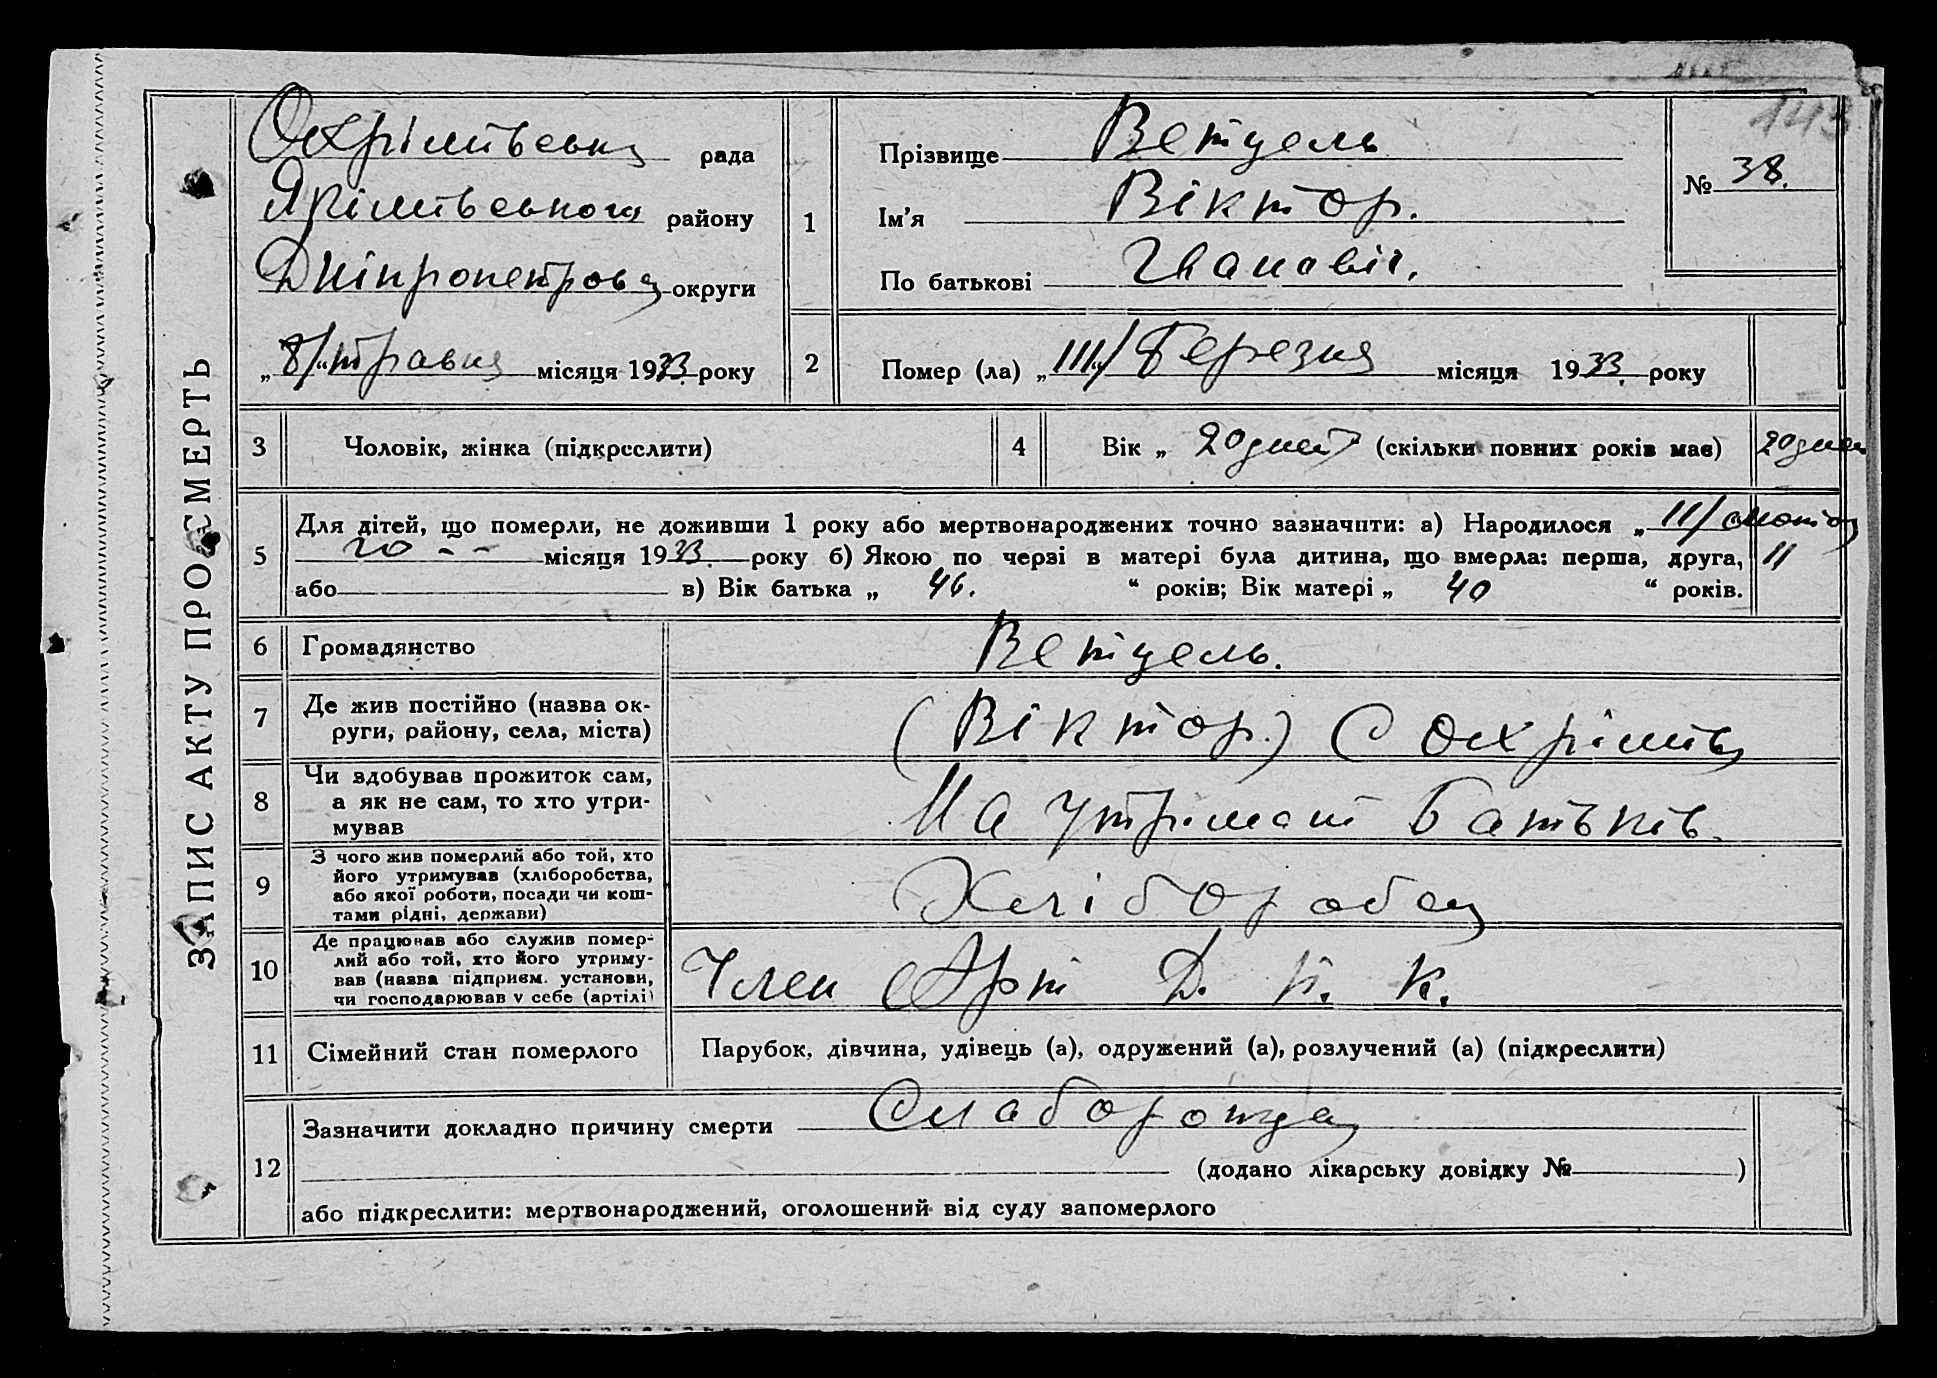 ЗАПИС АКТУ ПРО СМЕРТЬ
143
Охрімівська рада
Якімівського району
Дніпропетровск округи
„8/“ травня місяця 1933 року
1
Прізвище Ветцель
Ім'я Віктор.
По батькові Іванавіч.
№ 38.
2
Помер (ла) „III/“ Березня місяця 1933. року
3 Чоловік, жінка (підкреслити)
4 Вік „ 20 дней (скільки повних років має) 20 дней
5
Для дітей, що померли, не доживши 1 року або мертвонароджених точно зазначити: а) Народилося „11/
го - - місяця 1933. року б) Якою по черзі в матері була дитина, що вмерла: перша, друга, 11
або в) Вік батька „ 46. “ років; Вік матері „ 40 “ років.
6 Громадянство Ветцель.
7 Де жив постійно (назва ок-
руги, району, села, міста) (Віктор.) С Охрімів
8 Чи здобував прожиток сам,
а як не сам, то хто утри-
мував На утрімані Батьків.
9 З чого жив померлий або той, хто
його утримував (хліборобства,
або якої роботи, посади чи кош-
тами рідні, держави) Хлібороба
10 Де працював або служив помер-
лий або той, хто його утриму-
вав (назва підприєм. установи,
чи господарював у себе (артілі) Член Арт Д. К. К.
11 Сімейний стан померлого Парубок, дівчина, удівець (а), одружений (а), розлучений (а) (підкреслити)
12
Зазначити докладно причину смерти Слаборожда
(додано лікарську довідку № )
або підкреслити: мертвонароджений, оголошений від суду запомерлого